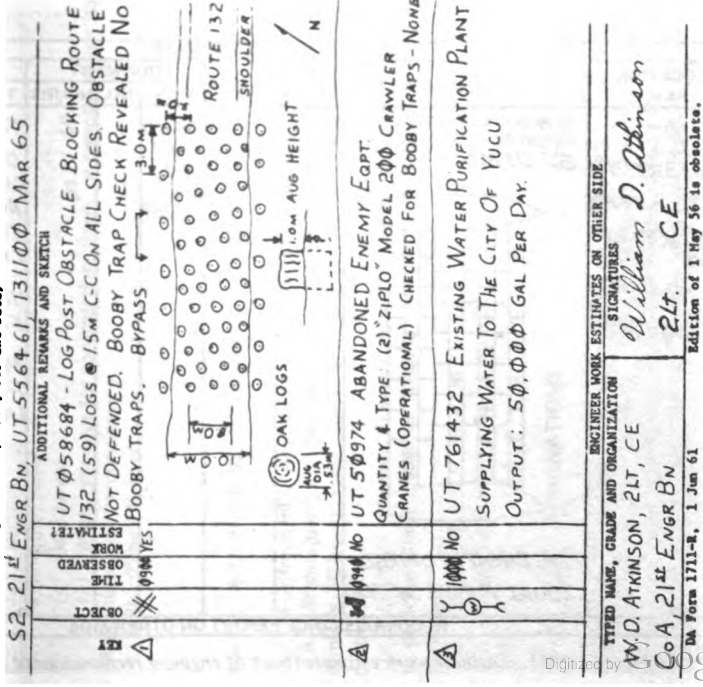 S2, 21st ENGR BN, UT 556461, 131100 MAR 65
ADDITIONAL REMARKS AND SKETCH
KEY
OBJECT
TIME OBSERVED
WORK ESTIMATE?
1 0900 YES
UT Ø58684 - LOG POST OBSTACLE BLOCKING ROUTE
132. (59) LOGS @ 1.5M C-C ON ALL SIDES. OBSTACLE
NOT DEFENDED. BOOBY TRAP CHECK REVEALED NO
BOOBY TRAPS. BYPASS
3.0M
ROUTE 132
SHOULDER
N
10.0M
8.0M
OAK LOGS
AUG DIA .53M
1.0M AUG HEIGHT
2 0940 NO UT 5Ø974 ABANDONED ENEMY EQPT.
QUANTITY & TYPE: (2) "ZIPLO" MODEL 2ØØ CRAWLER
CRANES (OPERATIONAL) CHECKED FOR BOOBY TRAPS - NONE
3 1000 NO UT 761432 EXISTING WATER PURIFICATION PLANT
W
SUPPLYING WATER TO THE CITY OF YUCU
OUTPUT: 5Ø,ØØØ GAL PER DAY.
ENGINEER WORK ESTIMATES ON OTHER SIDE
TYPED NAME, GRADE AND ORGANIZATION
W. D. ATKINSON, 2LT, CE
CO A, 21st ENGR BN
SIGNATURES
William D. Atkinson
2LT. CE
DA Form 1711-R, 1 Jun 61
Edition of 1 May 56 is obsolete.
Digitized by Goog